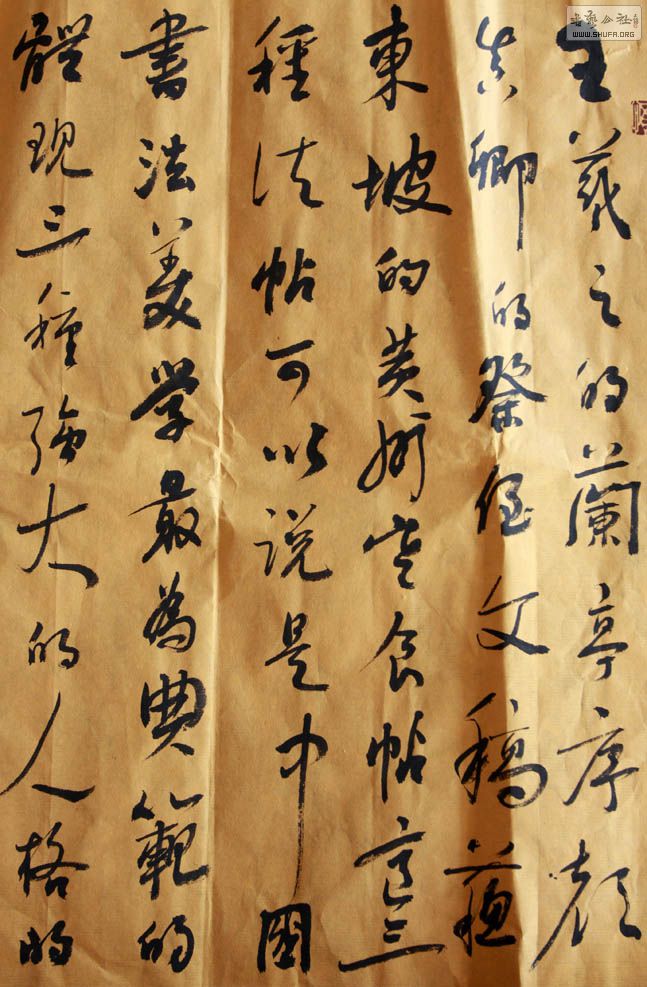 王羲之的蘭亭序顔
真卿的祭侄文稿蘓
東坡的黄州寒食帖這三
種法帖可以说是中國
書法美学最為典範的
體現三種強大的人格的
书艺公社
WWW.SHUFA.ORG